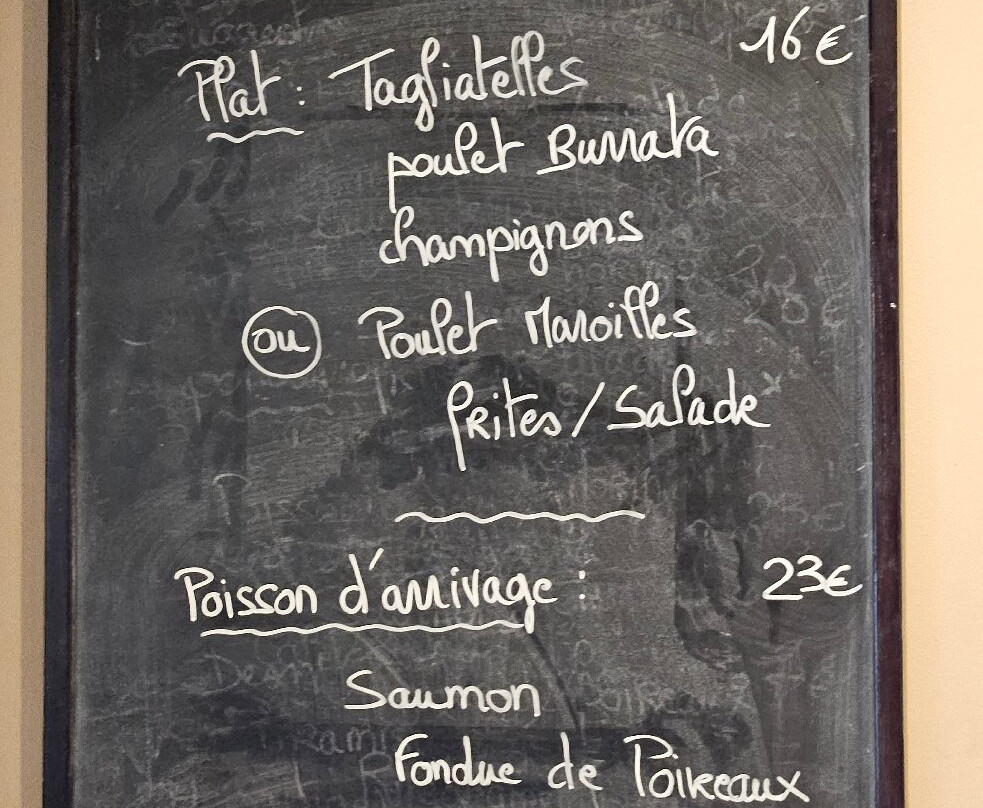 16€
Plat : Tagliatelles
poulet Burrata
champignons
ou Poulet Maroilles
frites / Salade
Poisson d'arrivage : 23€
Saumon
Fondue de Poireaux